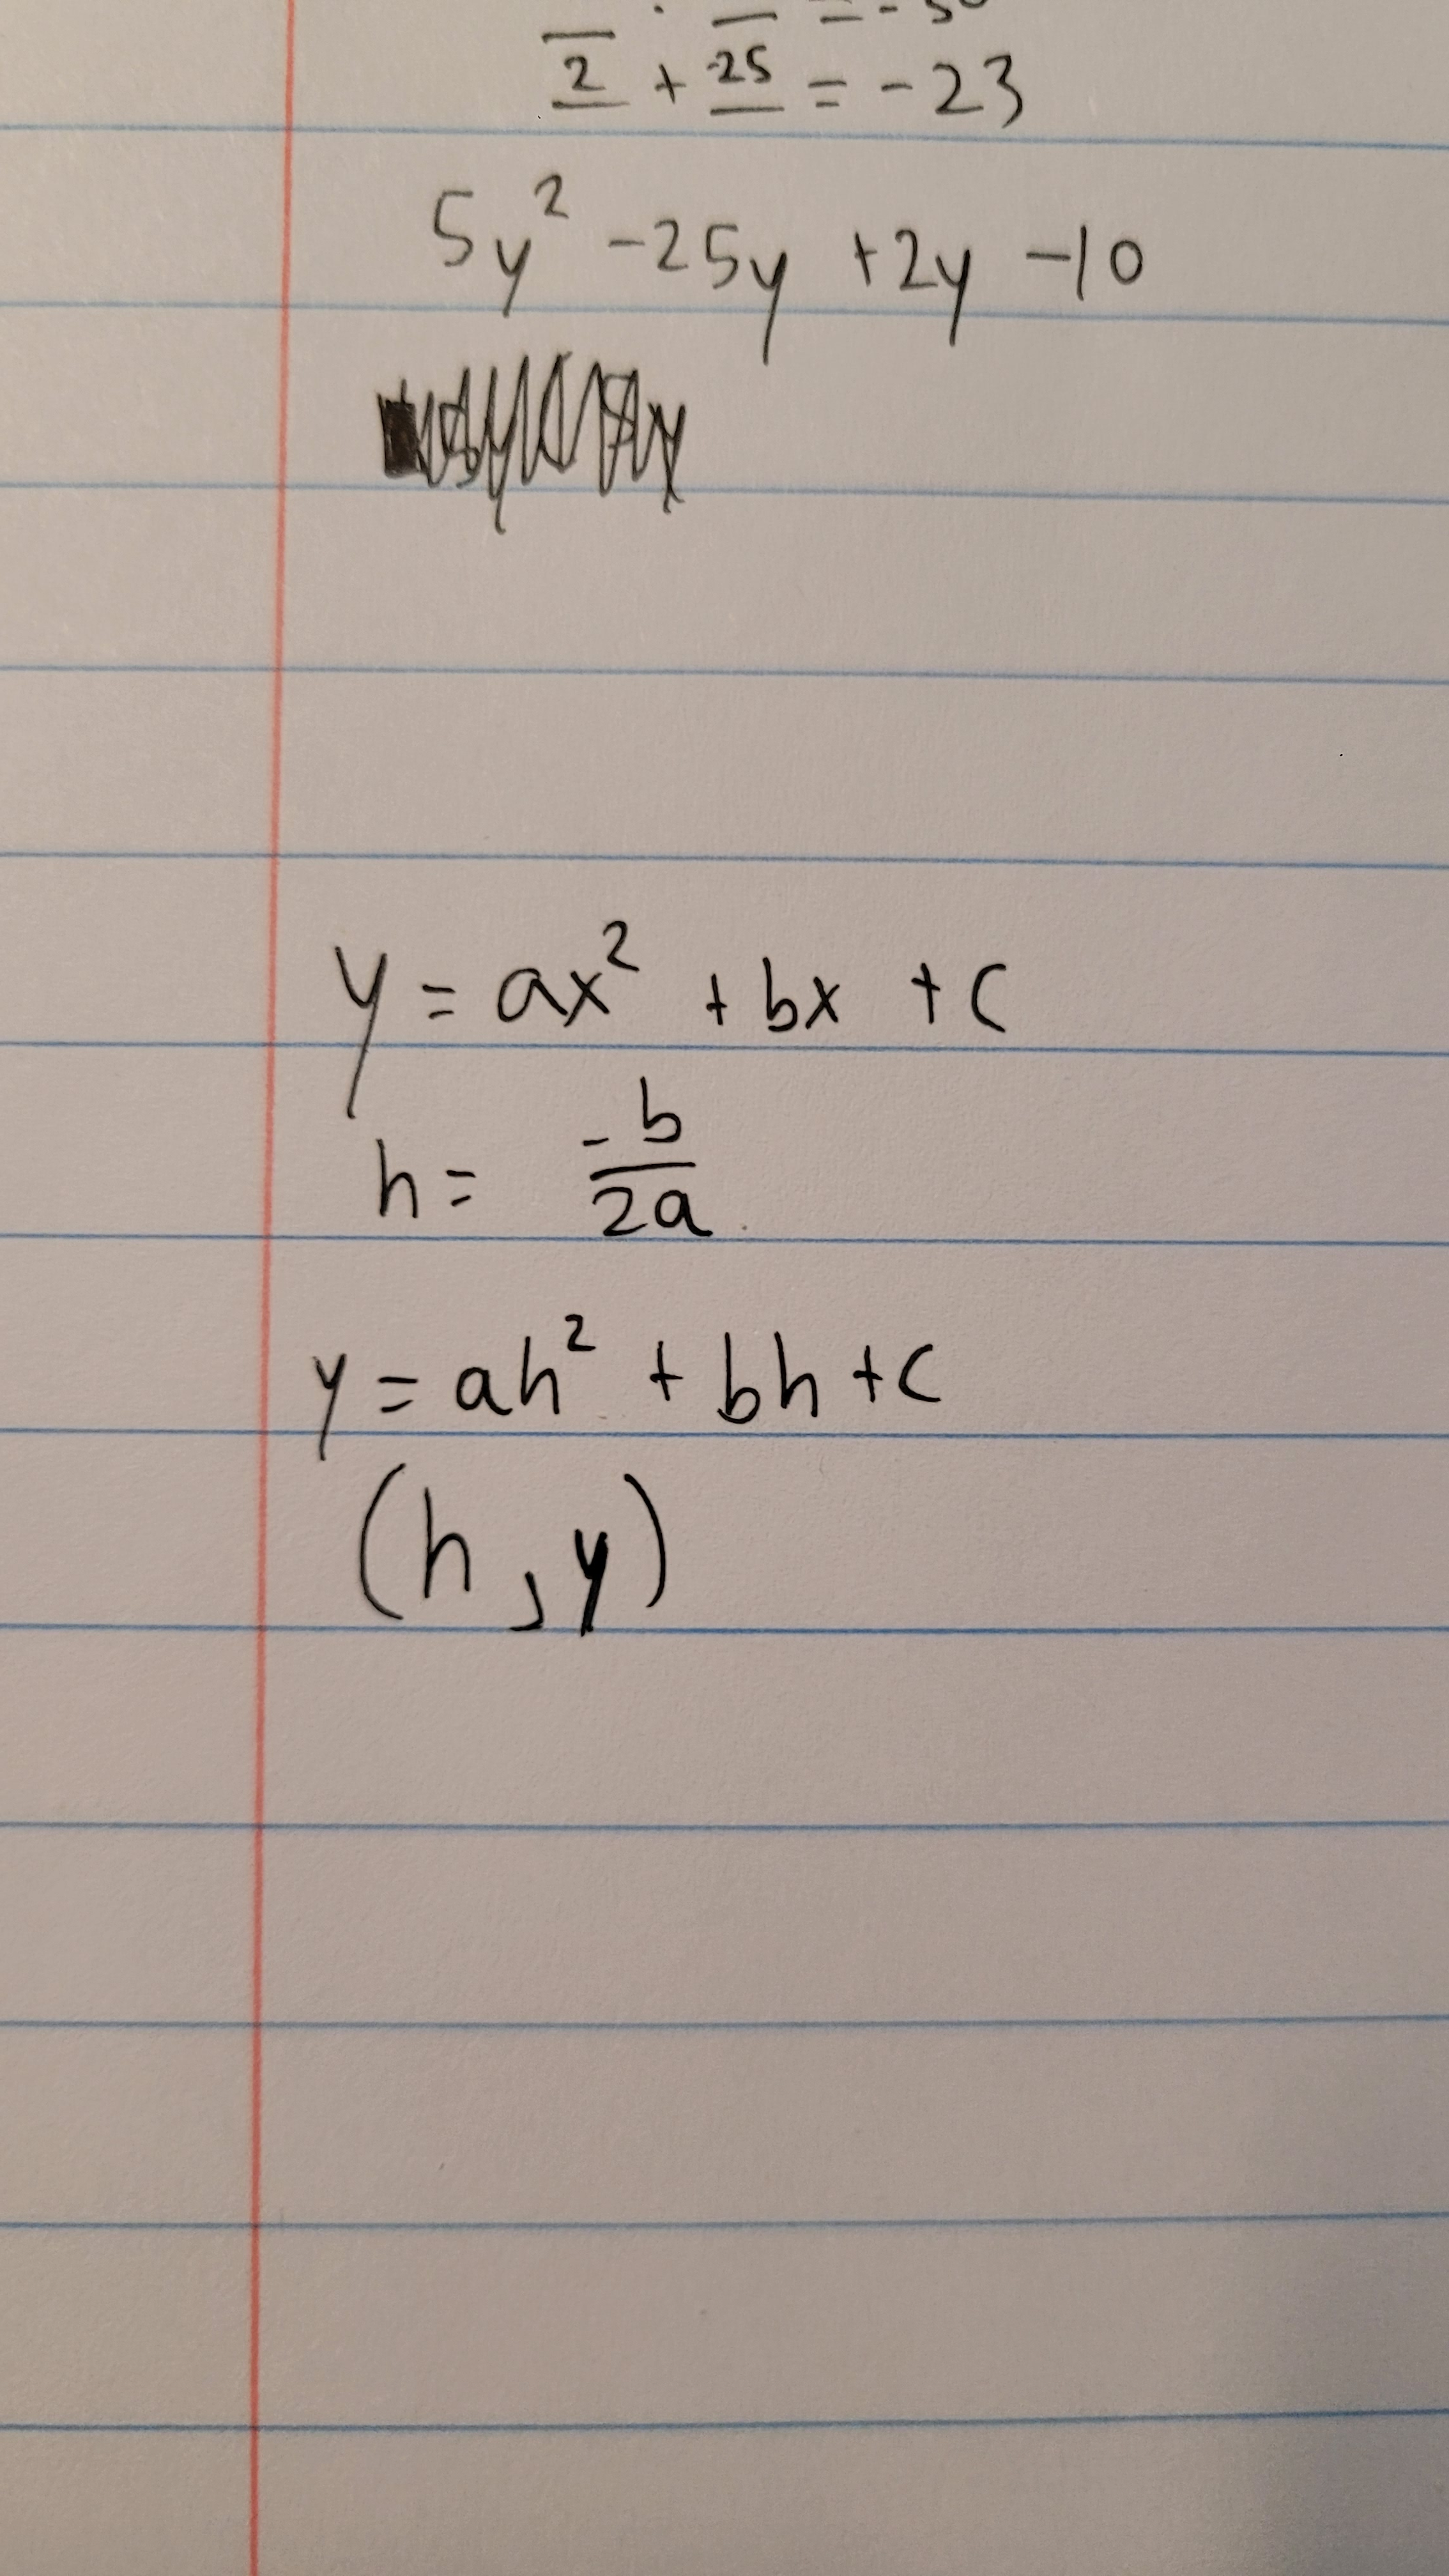 = -50
2 + -25 = -23
5y² -25y +2y -10
y = ax² + bx + c
h = -b/2a
y = ah² + bh + c
(h, y)